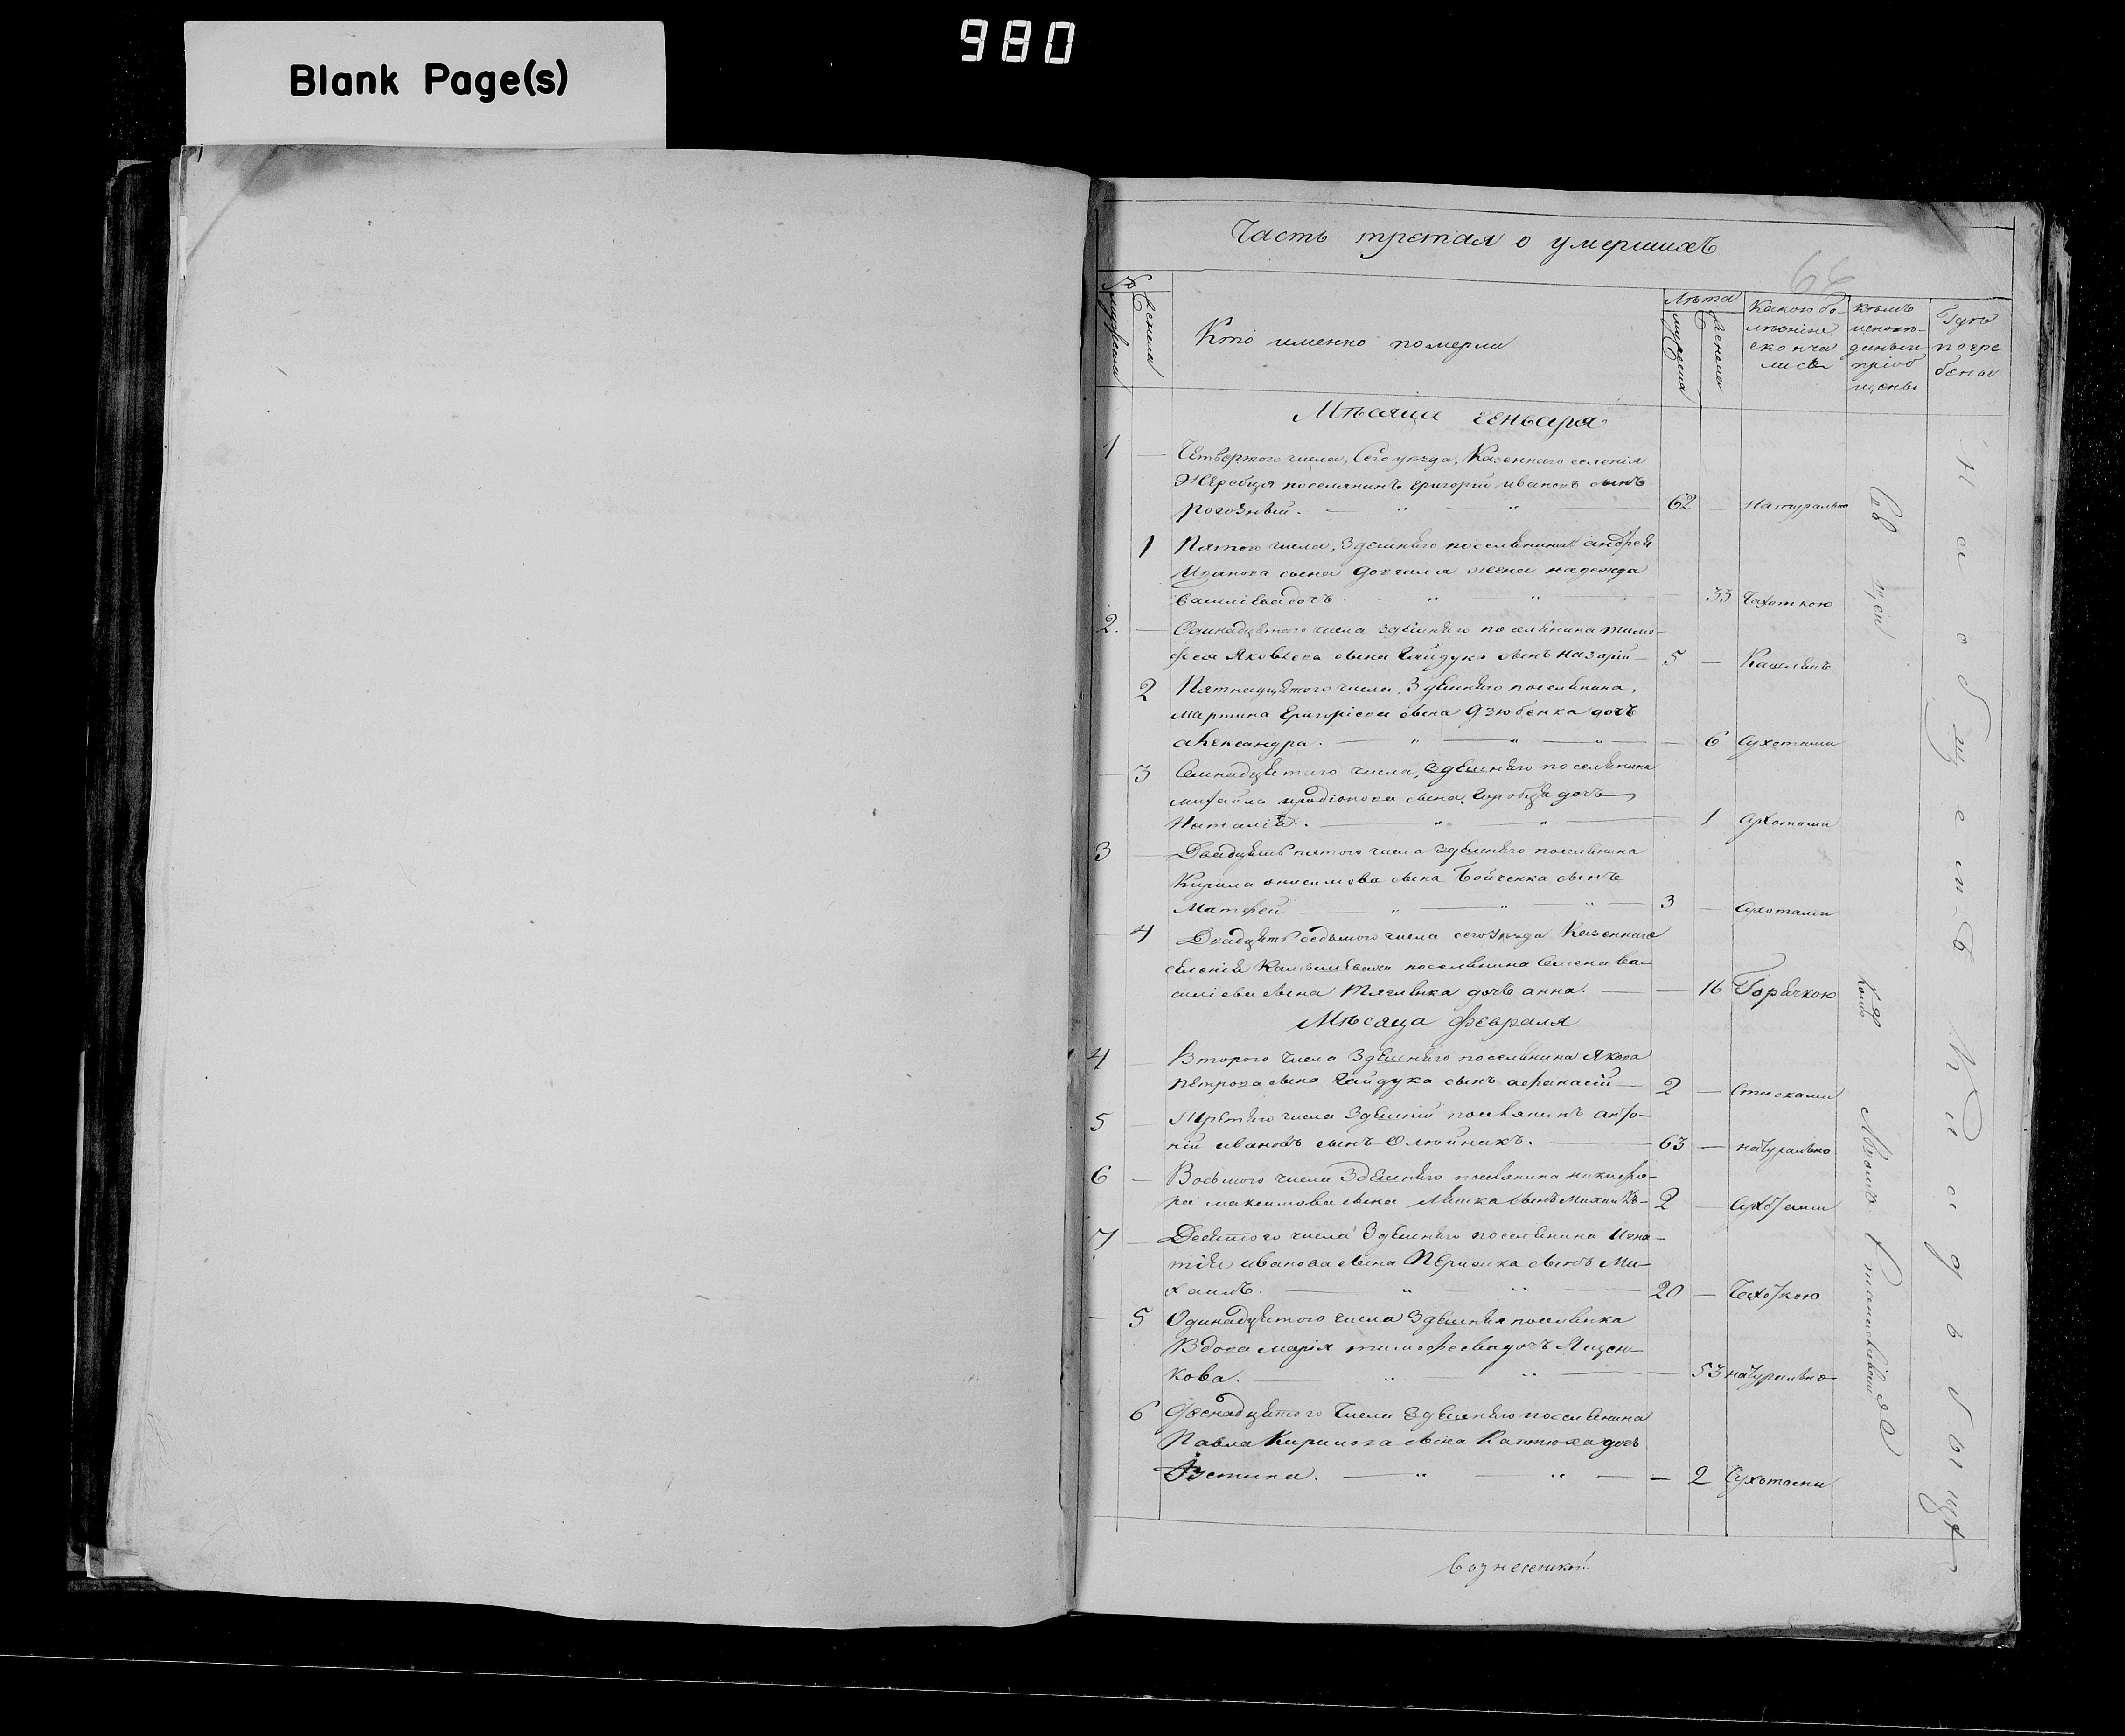 980
Blank Page(s)
Часть третая о умершихъ
66
№
мужеска
женска
Кто именно померли
Лѣта
мужеска
женска
Какою бо-
лѣзнию
сконча
лись
кѣмъ
исповѣ-
даны и
пріоб
щены
Гдѣ
погре
бены
Мѣсяца генваря
1 — Четвертого числа, Сего уѣзда, Казеннаго селенія
Жеребця поселянинъ григорій ивановъ сынъ
рогозный. — 62 Натурально
1 Пятого числа, Здешнего поселянина андрея
сына жена надежда
василіева дочь. — 33 Чахоткою
2. — Одинадцятаго числа здешнего поселянина тимо-
фея Яковлева сына Гайдука сынъ назарій — 5 — Кашлемъ
2 Пятнадцятого числа, Здешнего поселянина,
мартина григоріева сына Дзюбенка дочь
александра. — 6 Сухотами
— 3 Семнадцятого числа, здешнего поселянина
михайла иродіонова сына, горобця дочь
Наталія. — 1 Сухотами
3 — Двадцять пятого числа здешнего поселянина
Кирила онисимова сына Бойченка сынъ
Матфей — 3 — Сухотами
— 4 Двадцять седьмого числа сего уѣзда Казеннаго
селенія поселянина Семена Ва-
силіева сына дочь анна. — 16 Горячкою
Мѣсяца февраля
4 — Второго числа Здешнего поселянина Якова
петрова сына Гайдука сынъ афанасій — 2 — Стисками
5 — Третяго числа Здешній поселянинъ анто-
ній ивановъ сынъ Олюйникъ. — 63 — натурально
6 — Восьмого числа Здешнего поселянина никифо-
ра максимова сына Ляшка сынъ Михаилъ — 2 — Сухотами
7 — Десятого числа Здешнего поселянина Игна-
тія иванова сына сынъ Ми-
хаилъ. — 20 — Чахоткою
— 5 Одинадцятого числа Здешняя поселянка
Вдова марія тимофеева дочь Яцен-
кова. — 53 натурально
6 Двенадцятого числа Здешнего поселянина
Павла Кирилова сына Катюха дочь
Іустина. — 2 Сухотами
На общемъ кладбищѣ
вознесенской